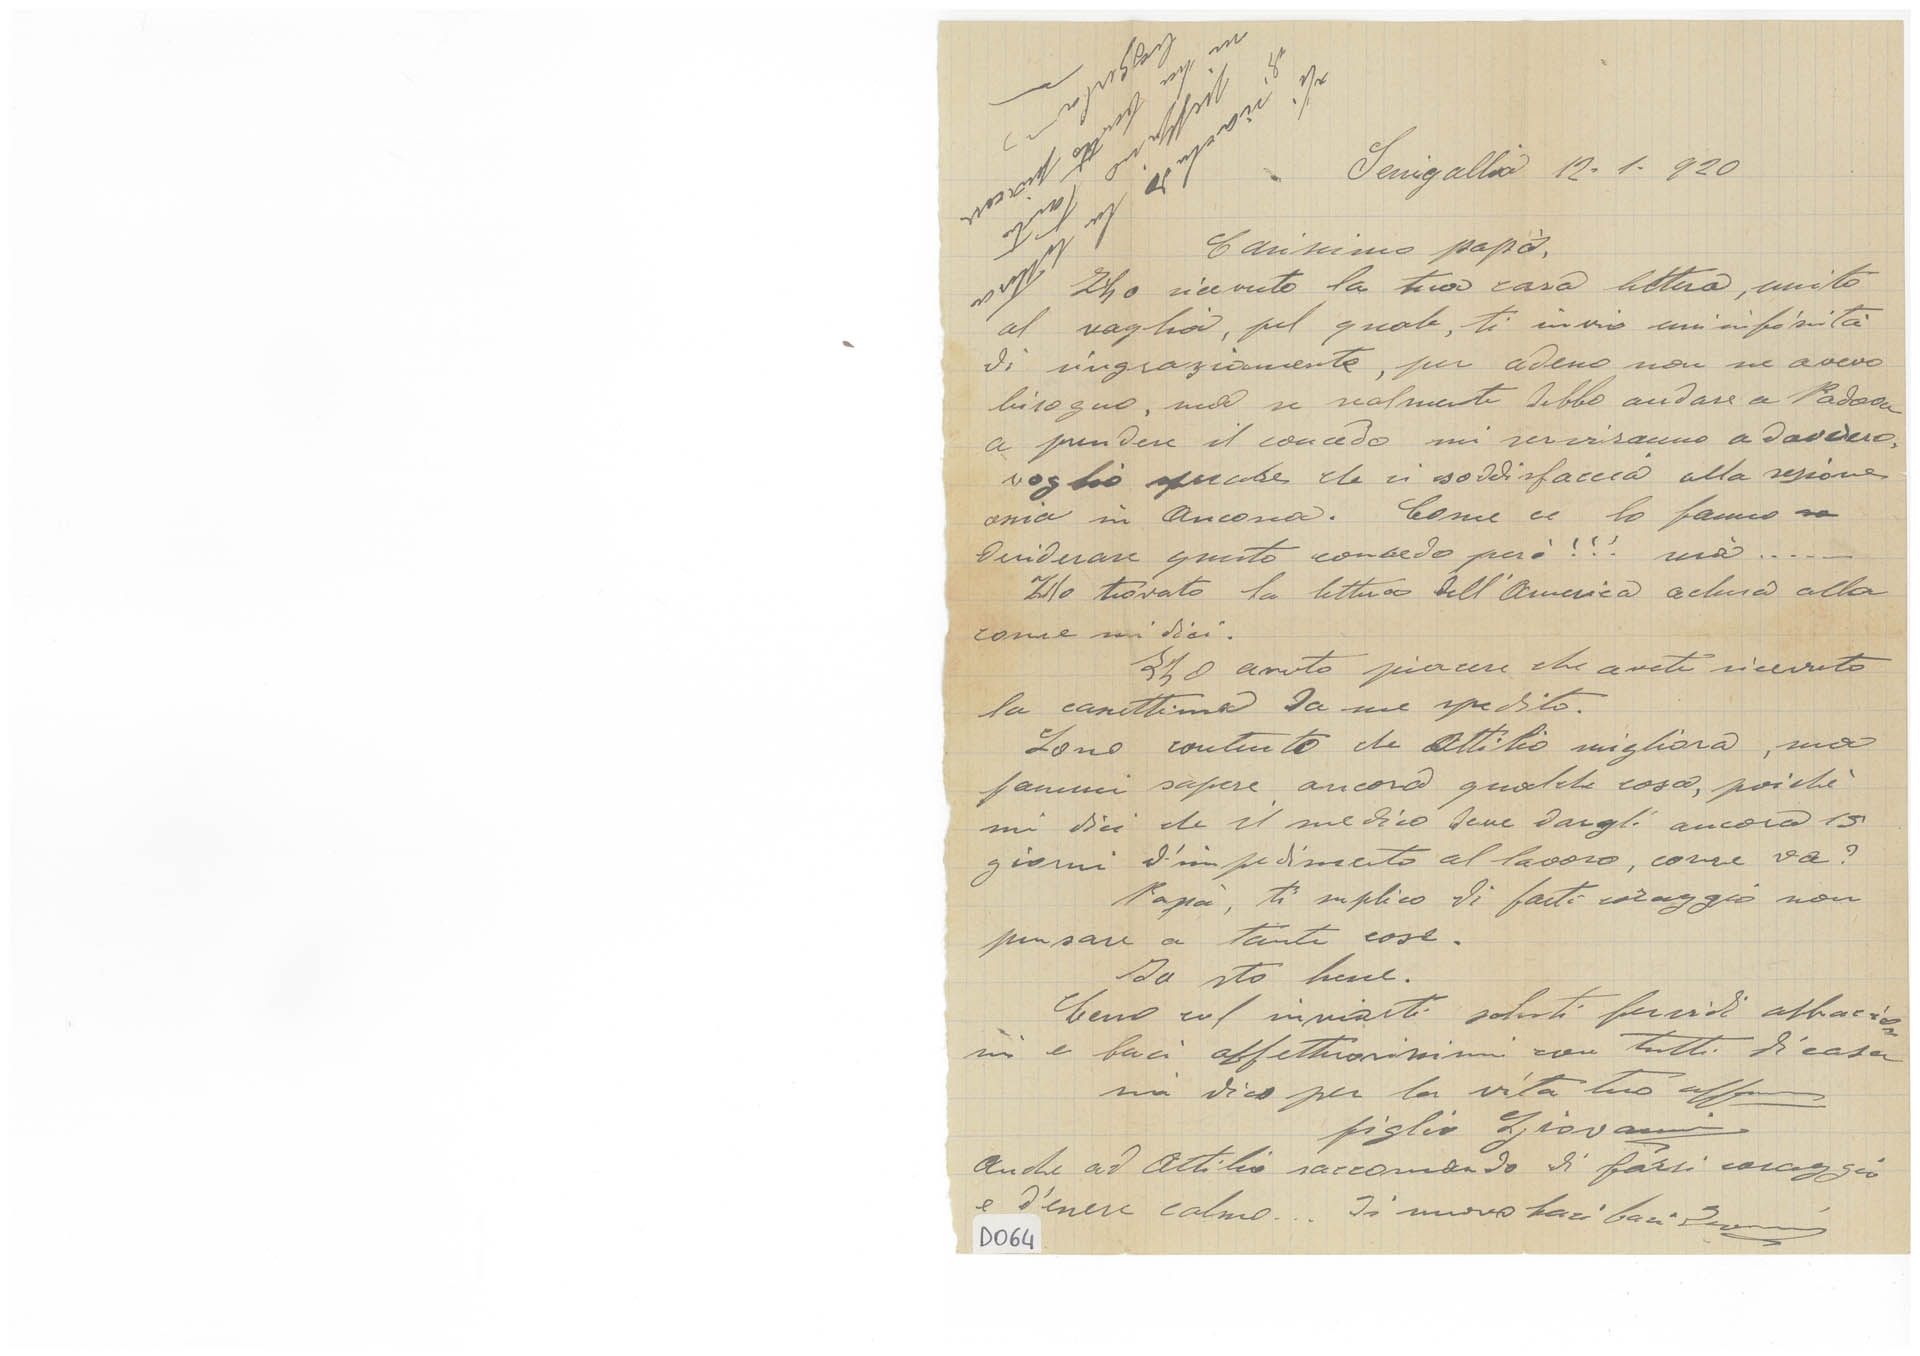 Senigallia 12-1-920
Carissimo papà,
Ho ricevuto la tua cara lettera, unito
al vaglia, pel quale, ti invio un'infinità
di ringraziamente, per adesso non ne avevo
bisogno, ma se realmente debbo andare a Padova
a prendere il concedo mi serviranno a davvero,
voglio sperare che ci soddisfaccia alla
in Ancona. Come ce lo fanno
desiderare questo concedo però!!! ma .....
Ho trovato la lettera dell'America aclusa alla
come mi dici.
Ho avuto piacere che avete ricevuto
la cassettina da me spedito.
Sono contento che Attilio migliora, ma
fammi sapere ancora qualche cosa, poichè
mi dici che il medico deve dargli ancora 15
giorni d'impedimento al lavoro, come va?
Papà, ti suplico di farti coraggio non
pensare a tante cose.
Io sto bene.
Cesso col inviarti saluti fervidi abbraccis
si e baci affettuosissimi con tutti di casa
mi dico per la vita tuo aff
figlio Giovanni
Anche ad Attilio raccomando di farsi coraggio
e d'essere calmo... Di nuovo baci baci Giovanni
D064
la lettera
mi ha fatto tanto piacere